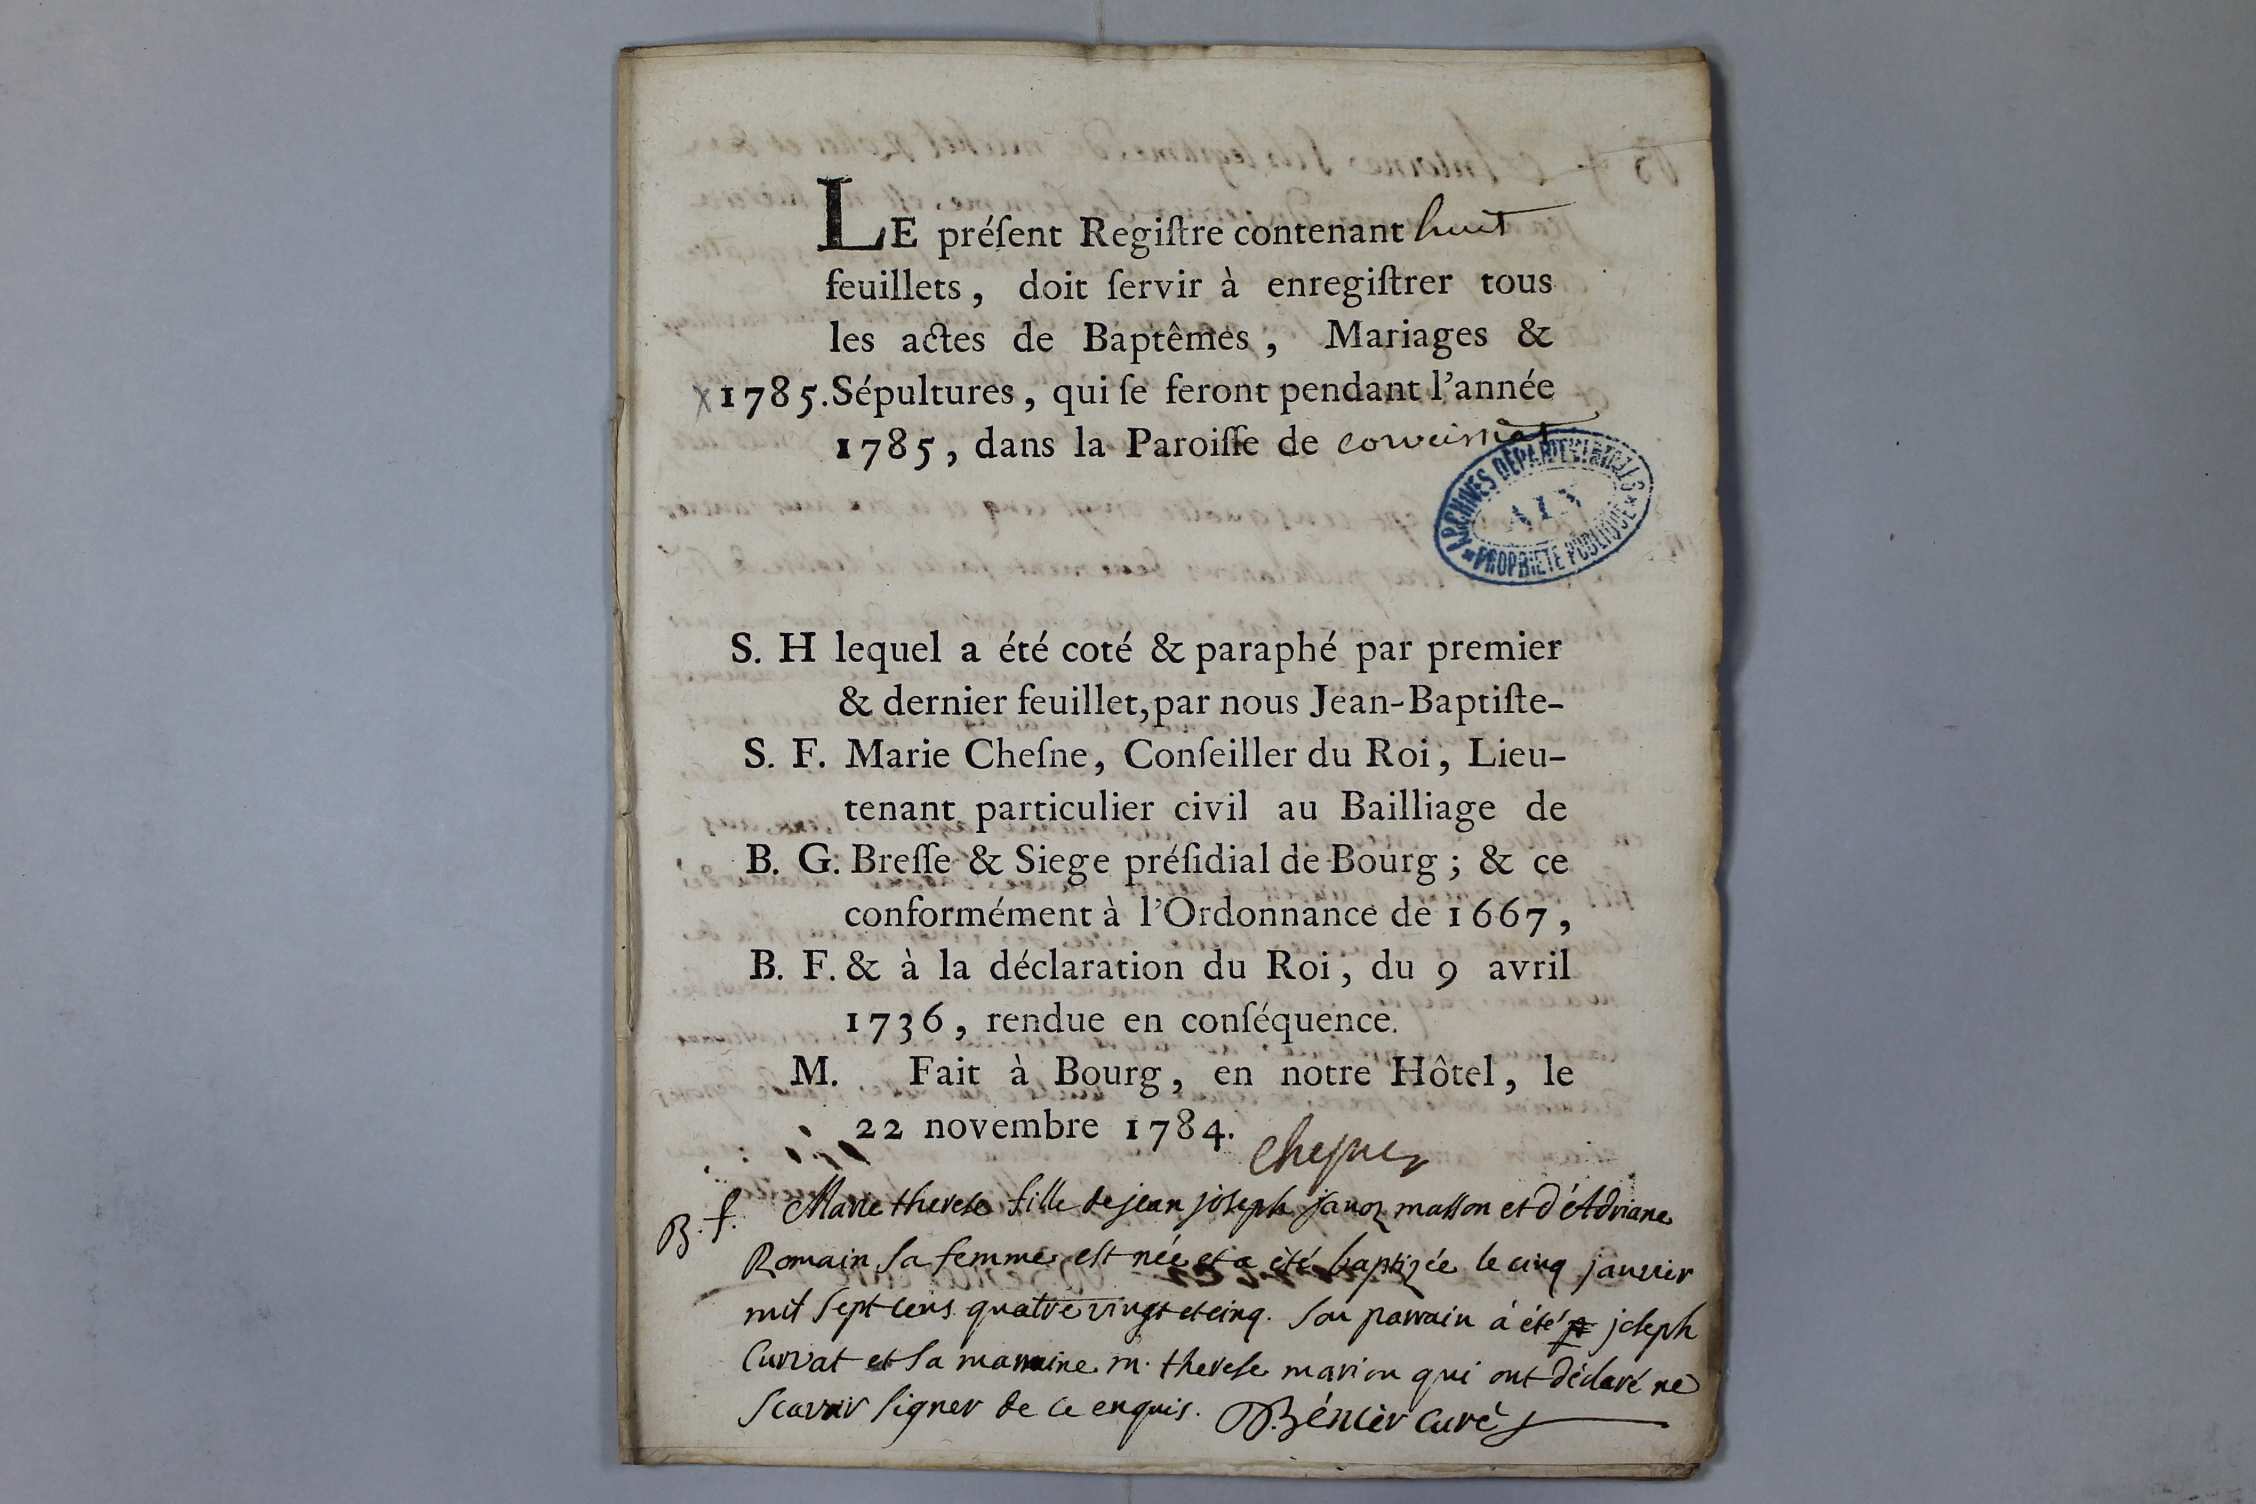 LE préſent Regiſtre contenant huit
feuillets, doit ſervir à enregiſtrer tous
les actes de Baptêmes, Mariages &
1785. Sépultures, qui ſe feront pendant l'année
1785, dans la Paroiſſe de corveissiat
ARCHIVES DÉPARTEMENTALES
AIN
PROPRIÉTÉ PUBLIQUE
S. H lequel a été coté & paraphé par premier
& dernier feuillet, par nous Jean-Baptiſte-
S. F. Marie Cheſne, Conſeiller du Roi, Lieu-
tenant particulier civil au Bailliage de
B. G. Breſſe & Siege préſidial de Bourg; & ce
conformément à l'Ordonnance de 1667,
B. F. & à la déclaration du Roi, du 9 avril
1736, rendue en conſéquence.
M. Fait à Bourg, en notre Hôtel, le
22 novembre 1784.
Chesne
B. f. Marie therese fille de jean joseph masson et d'Adriane
Romain sa femme est née et a été baptizée le cinq janvier
mil sept cens quatre vingt et cinq. Son parrain a été joseph
Curvat et sa marraine m. therese marion qui ont déclaré ne
scavoir signer de ce enquis. Béncer curé